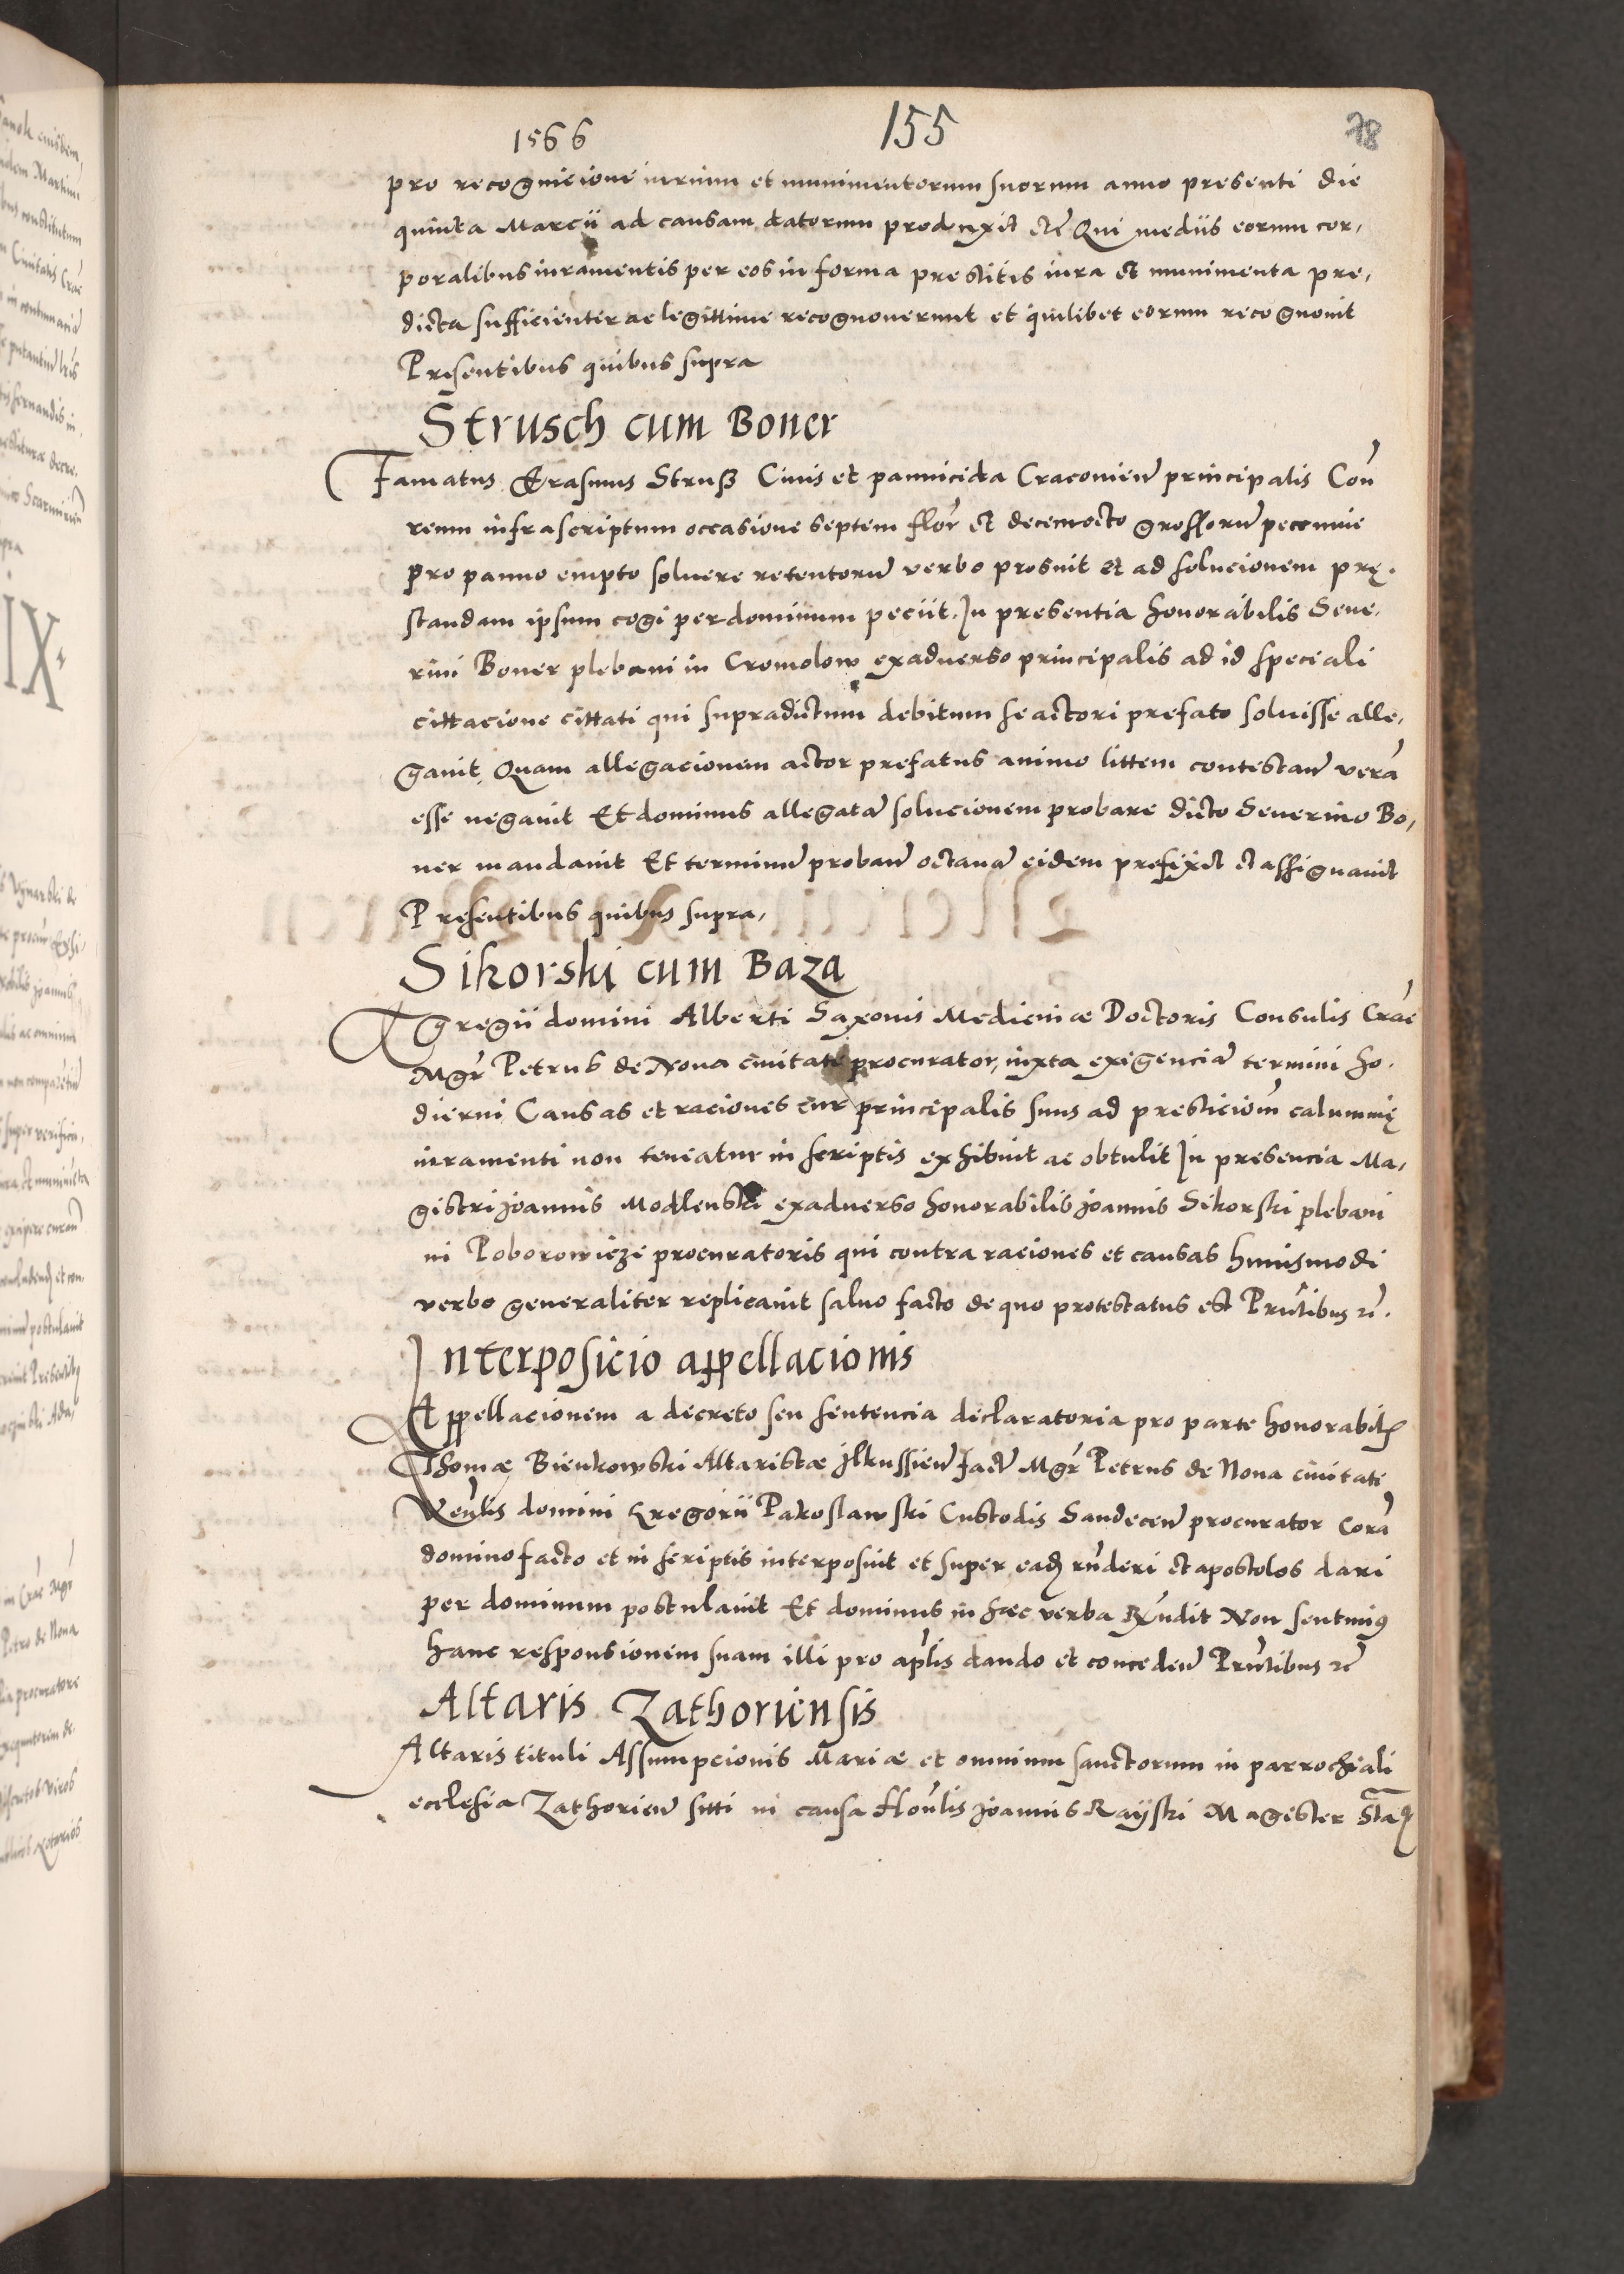 1566 155 78
pro recognicione iurium et munimentorum suorum anno presenti die
quinta Marcii ad causam datorum produxit etc̃ Qui mediis eorum cor,
poralibus iuramentis per eos in forma prestitis iura et munimenta pre,
dicta sufficienter ac legittime recognouerunt et quilibet eorum recognouit
Presentibus quibus supra
Strusch cum Boner
Famatus Erasmus Struß Ciuis et pannicida Cracouien̄ principalis Con̄
reum infrascriptum occasione septem flor̄ et decemocto grossorū pecuniae
pro panno empto soluere retentorū verbo prosuit et ad solucionem prę,
standam ipsum cogi per dominum peciit. In presentia honorabilis Seue,
rini Boner plebani in Cromolow exaduerso principalis ad id speciali
cittacione cittati qui supradictum debitum se actori prefato soluisse alle,
gauit. Quam allegacionem actor prefatus animo littem contestan̄ verā
esse negauit Et dominus allegatā solucionem probare dicto Seuerino Bo,
ner mandauit Et terminū proban̄ octauā eidem prefixit et assignauit
Presentibus quibus supra,
Sikorski cum Baza
Egregii domini Alberti Saxonis Medicinae Doctoris Consulis Crac̄
Mgr̄ Petrus de Noua ciuitate procurator, iuxta exigenciā termini ho,
dierni Causas et raciones cur principalis suus ad presticiōm calumnię
iuramenti non teneatur in scriptis exhibuit ac obtulit In presencia Ma,
gistri Joannis Modlenski exaduerso honorabilis Joannis Sikorski plebani
in Poborowicze procuratoris qui contra raciones et causas huiusmodi
verbo generaliter replicauit saluo facto de quo protestatus est Prn̄tibus ut s̄.
Interposicio appellacionis
Appellacionem a decreto seu sentencia declaratoria pro parte honorabil̄
Thomæ Bienkowski Altaristae Ilkussien̄ Mgr̄ Petrus de Noua ciuitate
Ven̄lis domini Gregorii Pakoslawski Custodis Sandecen̄ procurator Corā
domino facto et in scriptis interposuit et super eadē rn̄deri et apostolos dari
per dominum postulauit Et dominus in haec verba Rn̄dit Non sentimus
hanc responsionem suam illi pro apl̄is dando et conceden̄ Prn̄tibus ut s̄
Altaris Zathoriensis
Altaris tituli Assumpcionis Mariae et omnium sanctorum in parrochiali
ecclesia Zathorien̄ sitti in causa Hon̄lis Joannis Rayski Magister